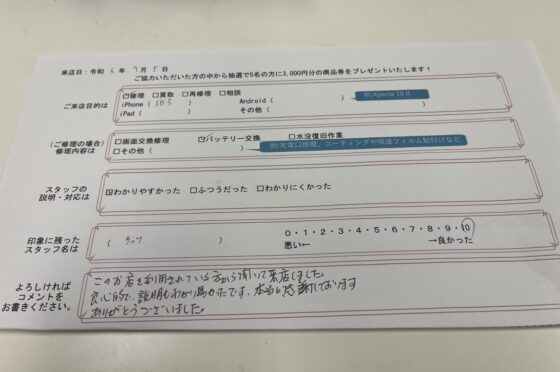 来店日:令和 6 年 7月 5 日
ご協力いただいた方の中から抽選で5名の方に3,000円分の商品券をプレゼントいたします!
ご来店目的は
☑修理 □買取 □再修理 □相談
iPhone( ) Android( )
iPad( ) その他( )
例:Xperia 10Ⅱ
(ご修理の場合)
修理内容は
□画面交換修理 ☑バッテリー交換 □水没復旧作業
□その他( )
例:充電口修理、コーティングや保護フィルム貼付けなど
スタッフの
説明・対応は
☑わかりやすかった □ふつうだった □わかりにくかった
印象に残った
スタッフ名は
( )
0・1・2・3・4・5・6・7・8・9・10
悪い← →良かった
よろしければ
コメントを
お書きください。
このお店を利用されている方から聞いて来店しました。
良心的で、説明もわかり易かったです、本当に感謝しております
ありがとうございました。